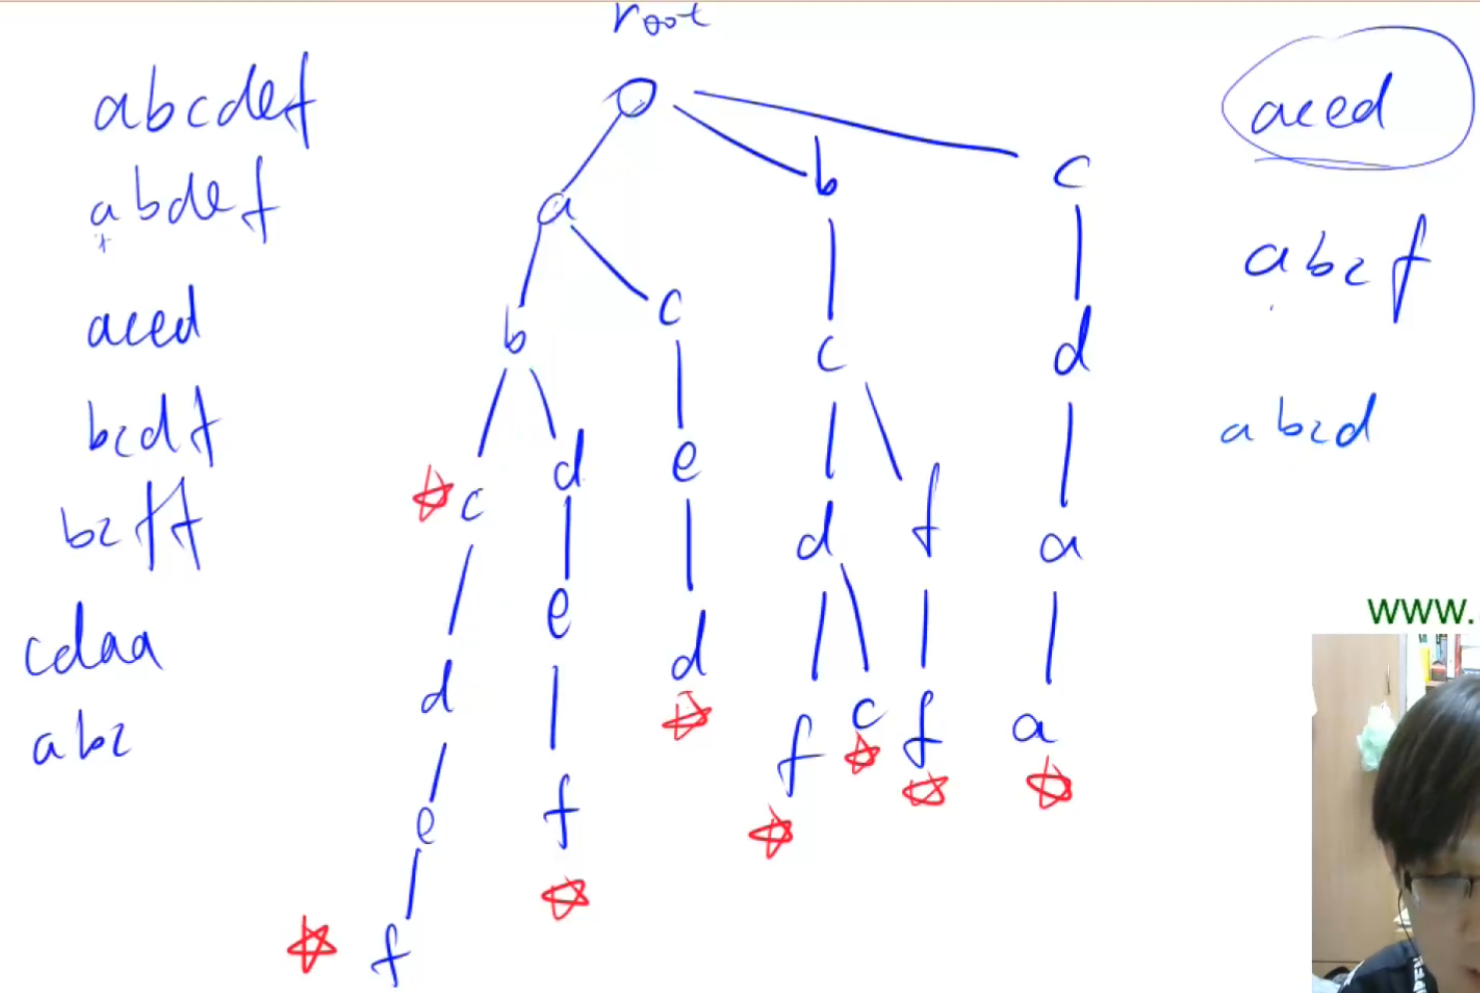 root
abcdef
abdef
aced
bcdf
bcff
cdaa
abc
a b c
b c c d
c d e d f a
d e d f c f a
e f
f
aced
abcf
abcd
www.